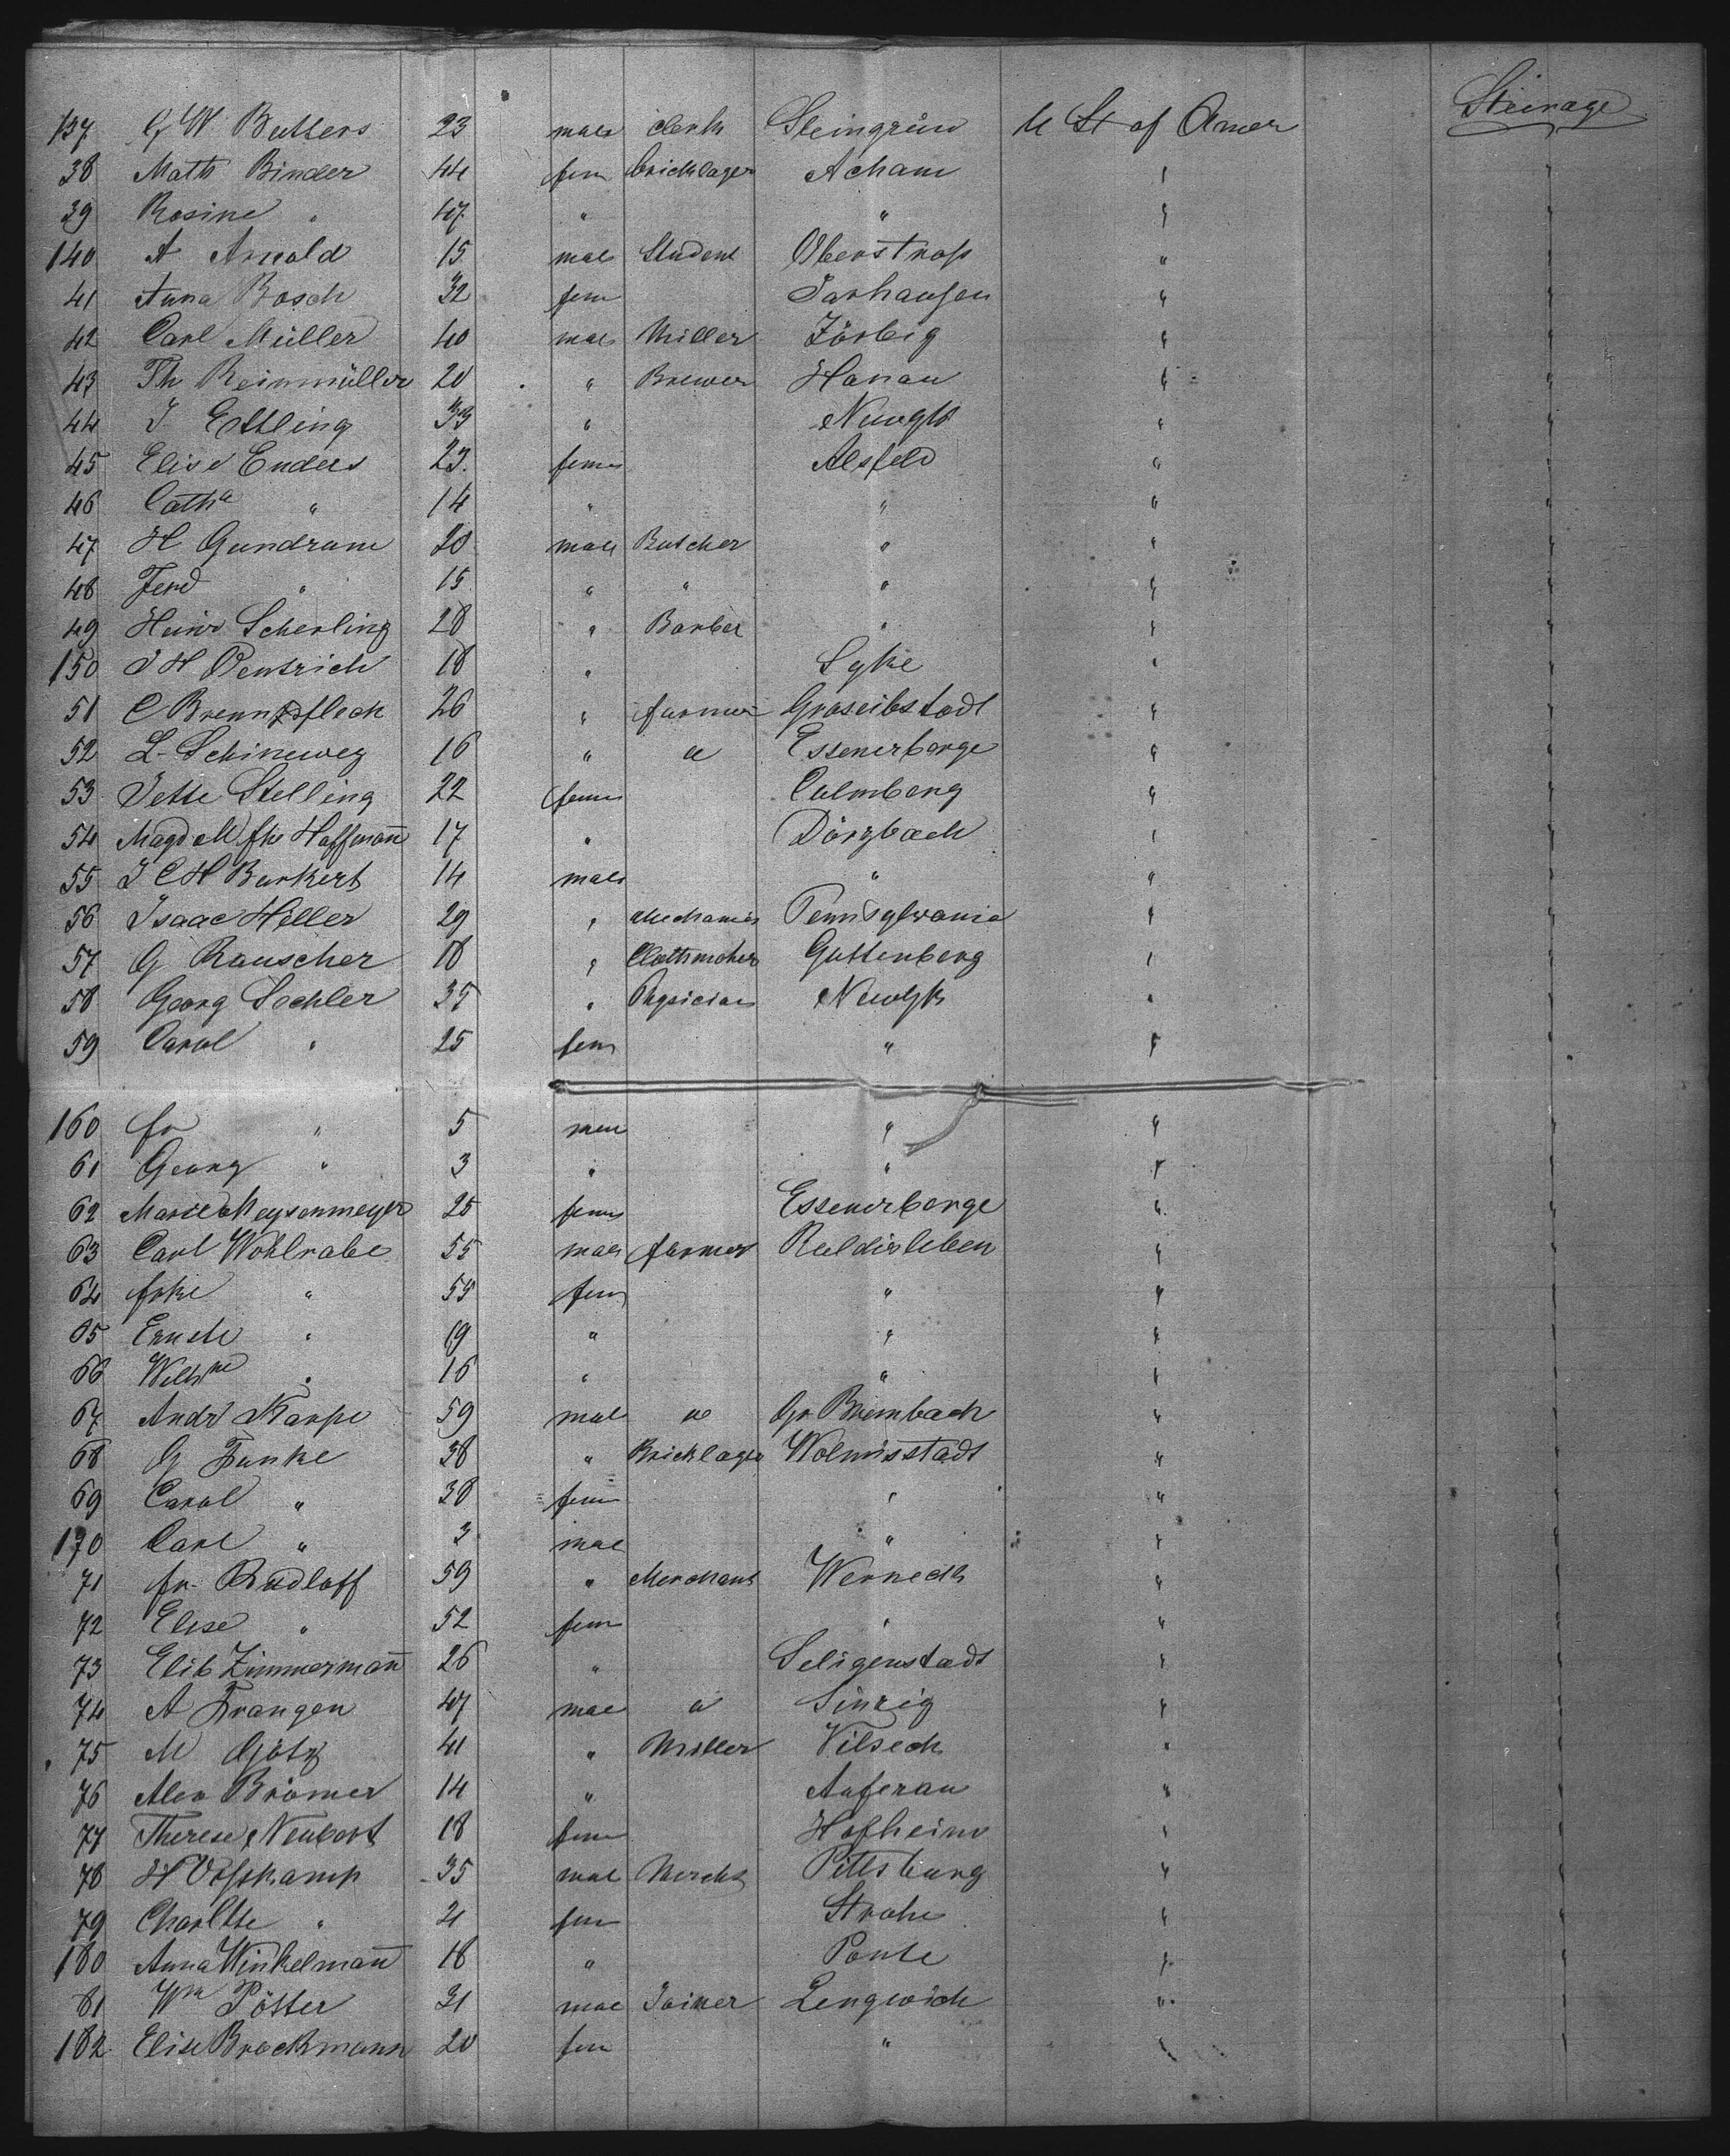 137 G W Butters 23 male clerk Steingrün U St of Amer Steirage
38 Math Binder 44 fem bricklayer Acham "
39 Rosine " 47 " " "
140 A Arnold 15 male Student "
41 Anna Bosch 32 fem "
42 Carl Müller 40 male Miller Zörbig "
43 Th Reinmüller 20 " Brewer Hanau "
44 J Ettling 33 " NewYk "
45 Elise Enders 23 fem Alsfeld "
46 Cath a " 14 " " "
47 H Gundrum 20 male Butcher " "
48 Ferd " 15 " " " "
49 Heinr Scherling 28 " Barber " "
150 J H Dentrich 18 " Syke "
51 C 26 " farmer "
52 L Schineweg 16 " " Essenerberge "
53 Jette Stelling 22 fem Culmberg "
54 Hoffman̄ 17 " Dörzbach "
55 J C H Burkert 14 male " "
56 Isaac Hiller 29 " Mechanic Pennsylvania "
57 G Rauscher 18 " Guttenberg "
58 Georg Sochler 35 " Physician NewYk "
59 Carol " 25 fem " "
160 fr " 5 " "
61 Georg " 3 " " "
62 Marie Meysenmeyer 25 fem Essenerberge "
63 Carl Wohlrabe 55 male farmer Ruldisleben "
64 frke " 55 fem " "
65 " 19 " " "
66 Wilh ne " 16 " " "
67 Andr Karpe 59 male " Gr Brembach "
68 G Funke 38 " Bricklayer Wolmisstadt "
69 Carol " 38 fem " "
170 Carl " 3 mal " "
71 fr. Rudloff 59 " Merchant Werneck "
72 Elise " 52 fem " "
73 Elib Zimmerman̄ 26 " Seligenstadt "
74 A Frangen 47 mal " Sinzig "
75 M Götz 41 " Miller Vilseck "
76 Alex Brömer 14 " "
77 Therese Neubert 18 fem Hofheim "
78 H Vosskamp 35 mal Mercht Pittsburg "
79 Charltte " 21 fem Strohe "
180 Anna Winkelman̄ 18 " Ponte "
81 Wm Pötter 31 mal Joiner Lengwich "
182 Elise Brockmann 20 fem " "